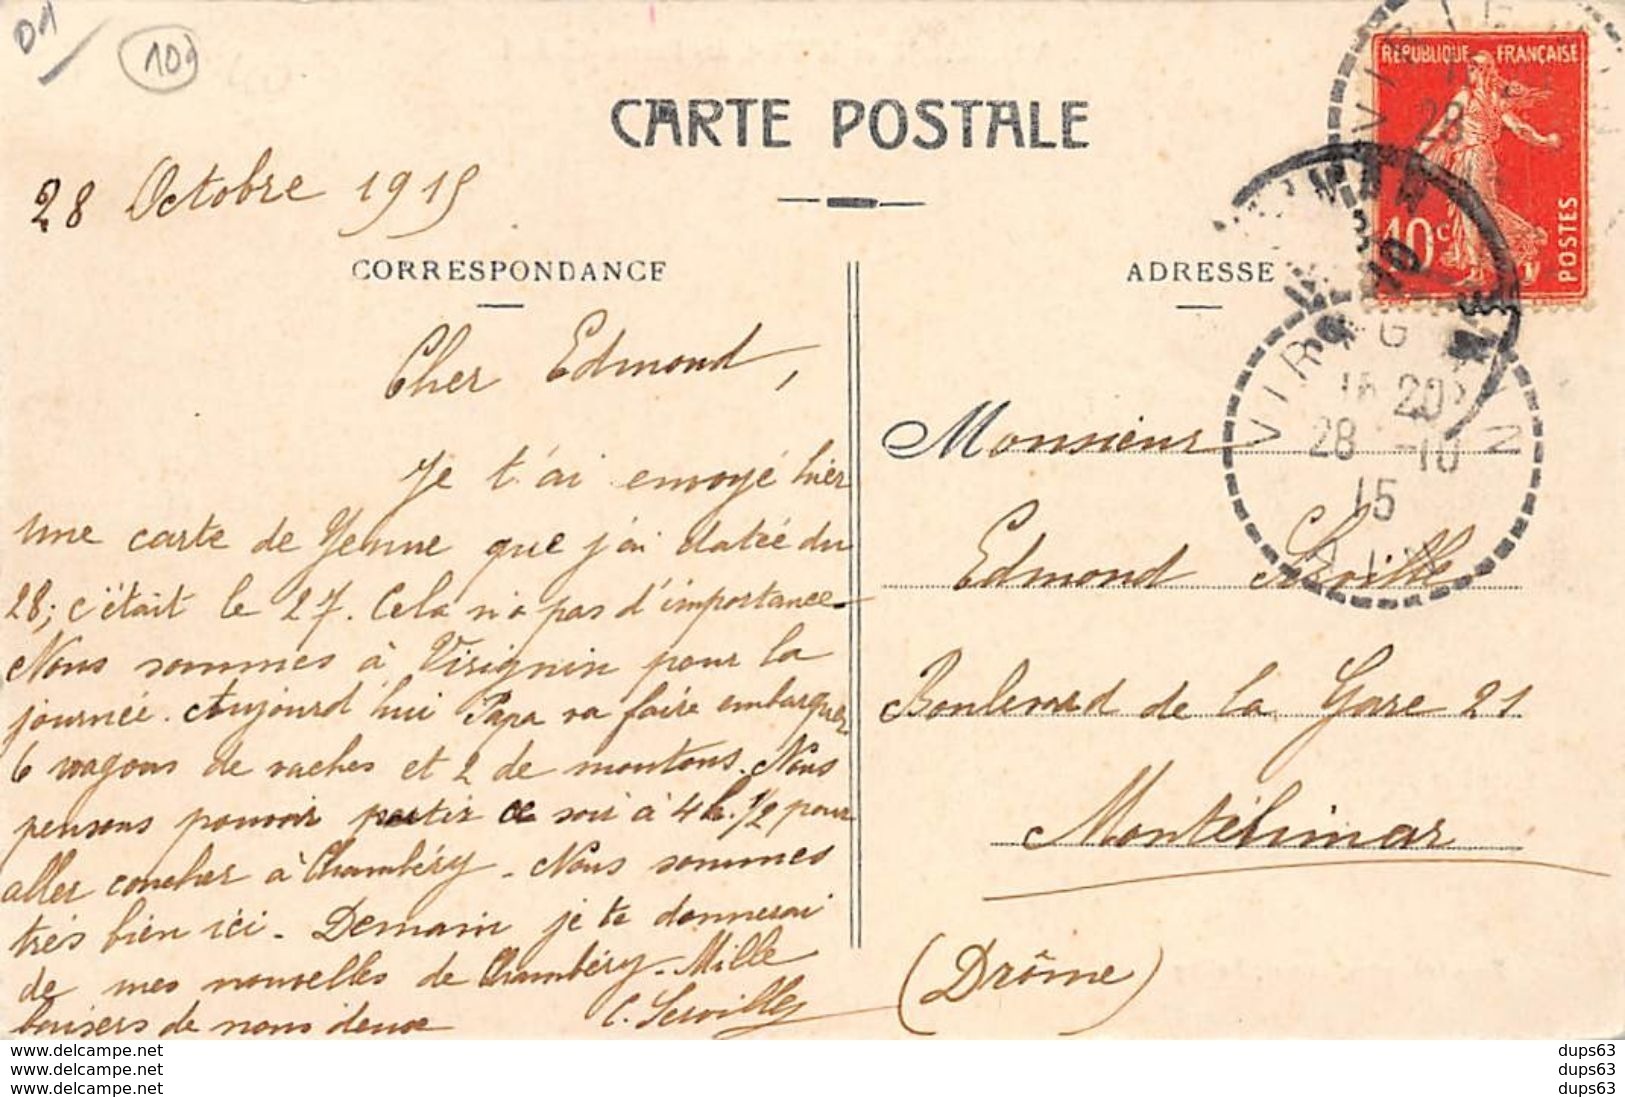 01
109
CARTE POSTALE
28 Octobre 1915
CORRESPONDANCE
Cher Edmond,
Je t'ai envoyé hier
une carte de Yenne que j'ai datée du
28; c'était le 27. Cela n'a pas d'importance.
Nous sommes à Virignin pour la
journée. Aujourd'hui Papa va faire embarquer
6 wagons de vaches et 2 de moutons. Nous
pensons pouvoir partir ce soir à 4h. 1/2 pour
aller coucher à Chambéry. Nous sommes
très bien ici. Demain je te donnerai
de mes nouvelles de Chambéry. Mille
baisers de nous deux
C. Serville
ADRESSE
Monsieur
Edmond Serville
Boulevard de la Gare 21
Montélimar
(Drôme)
REPUBLIQUE FRANÇAISE
10c
POSTES
28
VIRIGNIN
28 -10
15
AIN
www.delcampe.net
www.delcampe.net
www.delcampe.net
dups63
dups63
dups63